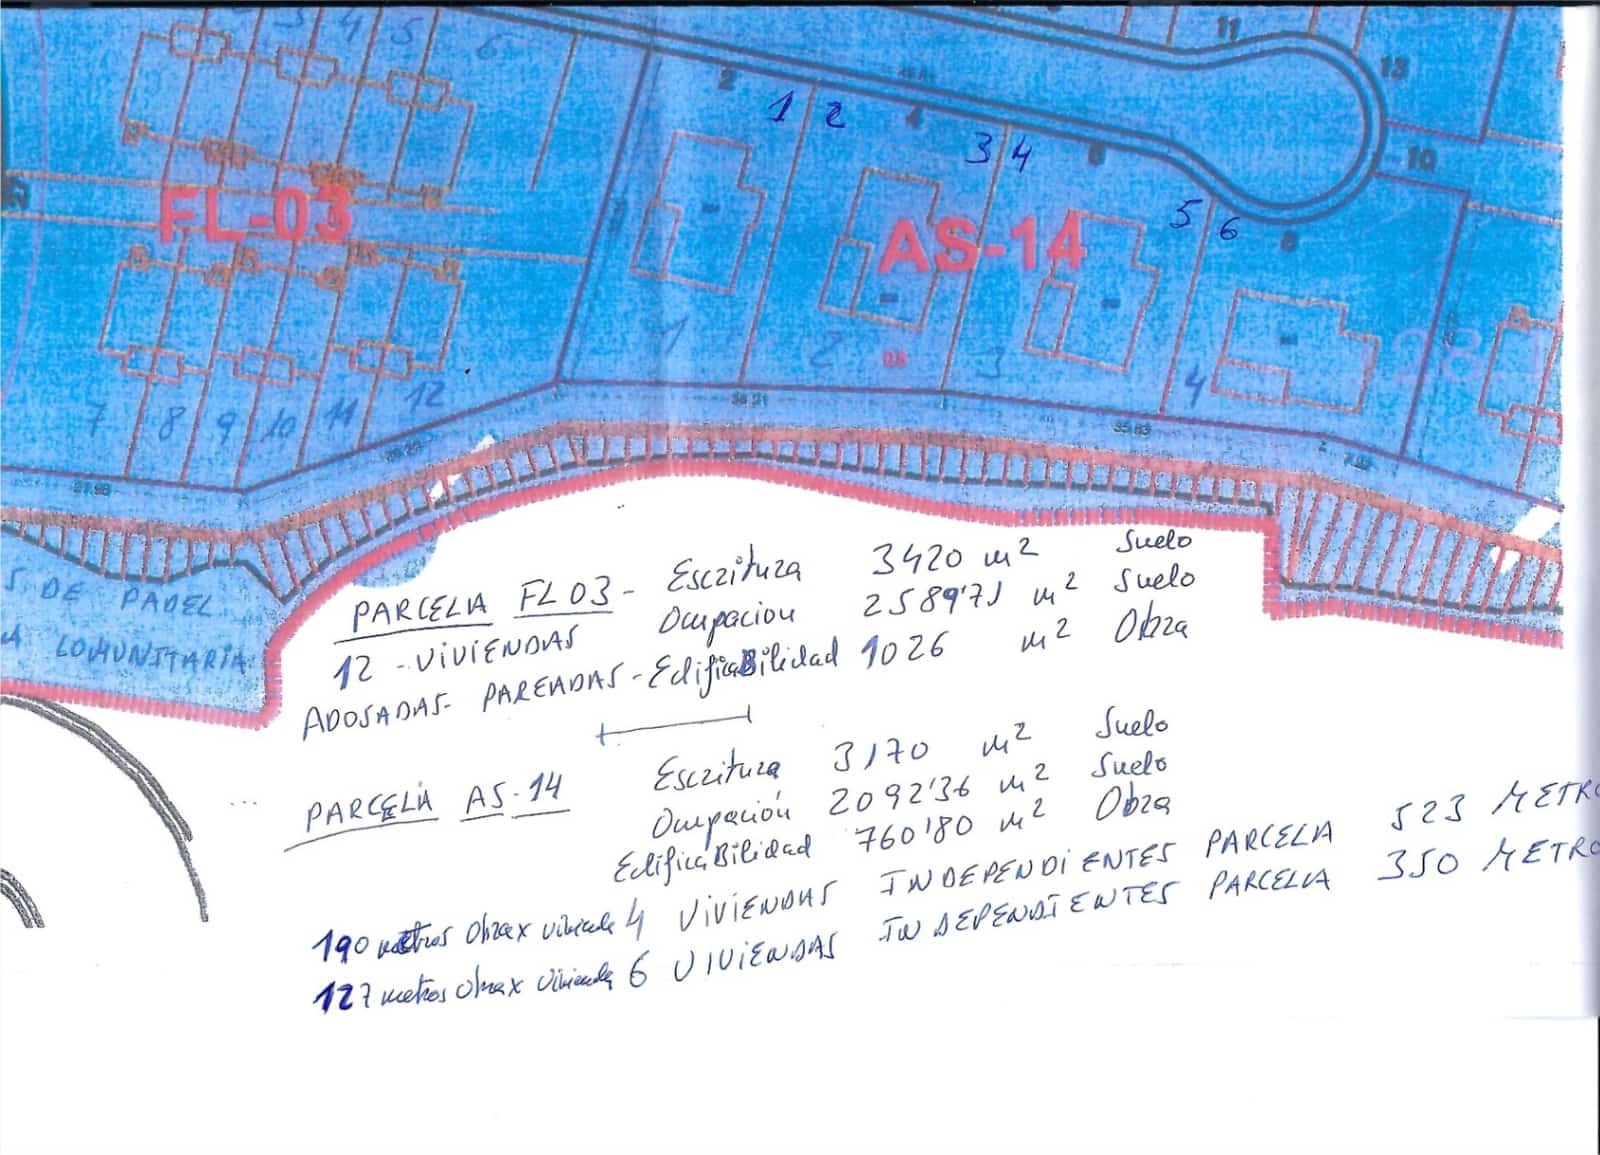 3 4 5 6
11
13
2
1 2
4
3 4
6
10
5 6
8
FL-03
AS-14
1 2 3 4
DS
7 8 9 10 11 12
36.21
35.63
S DE PADEL
A COMUNITARIA
PARCELA FL 03 - Escritura 3420 m² Suelo
Ocupacion 2589'71 m² Suelo
12 - VIVIENDAS
ADOSADAS - PAREADAS - EdificaBilidad 1026 m² Obra
PARCELA AS-14 Escritura 3170 m² Suelo
Ocupación 2092'36 m² Suelo
EdificaBilidad 760'80 m² Obra
190 metros Obra x vivienda 4 VIVIENDAS INDEPENDIENTES PARCELA 523 METRO
127 metros Obra x vivienda 6 VIVIENDAS INDEPENDIENTES PARCELA 350 METRO